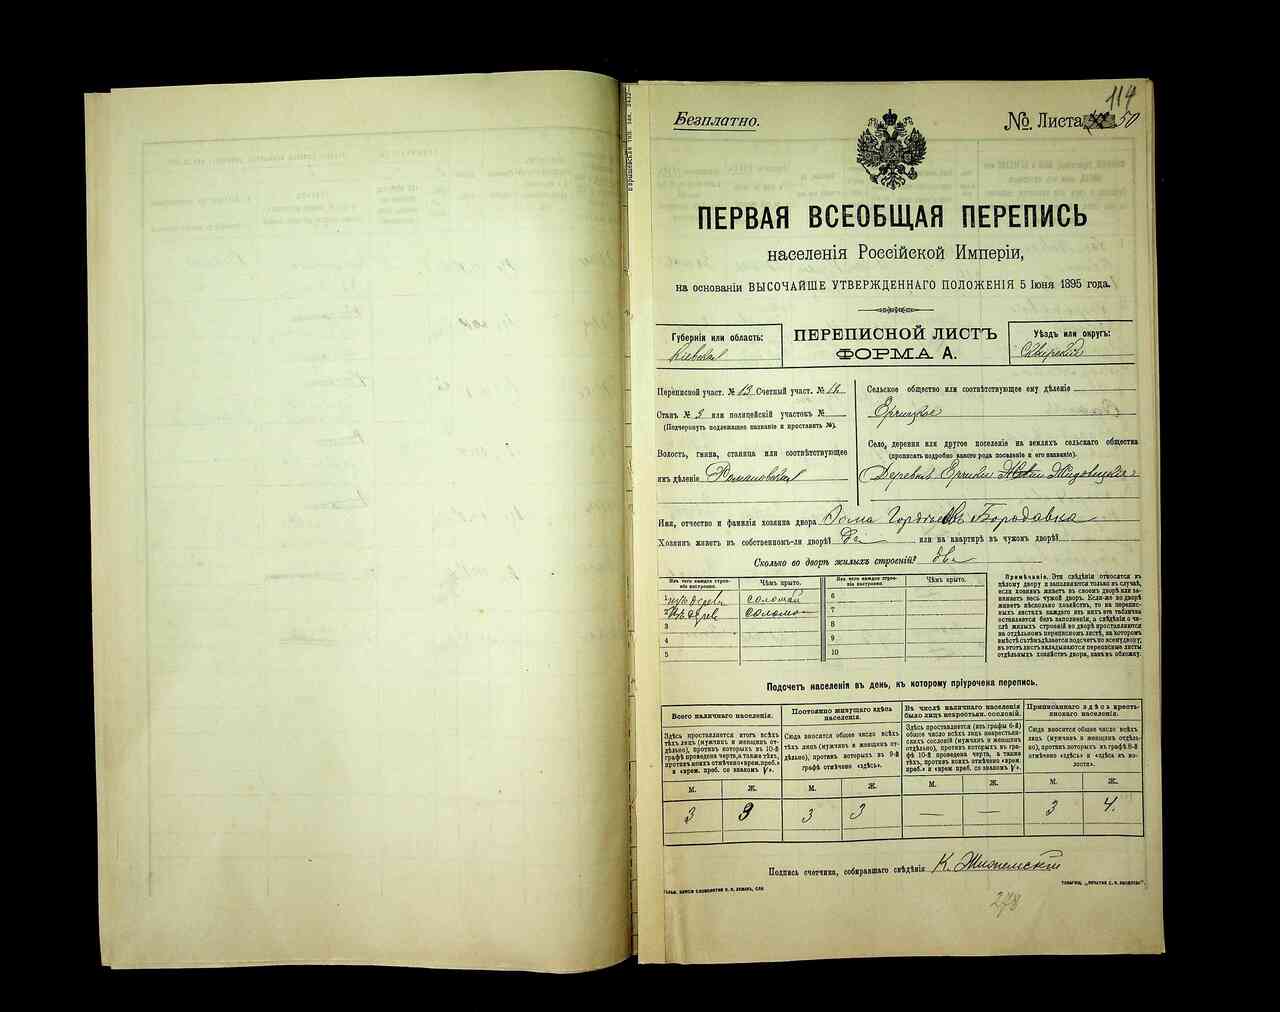 114
Безплатно.
№. Листа 50
ПЕРВАЯ ВСЕОБЩАЯ ПЕРЕПИСЬ
населенія Россійской Имперіи,
на основаніи ВЫСОЧАЙШЕ УТВЕРЖДЕННАГО ПОЛОЖЕНІЯ 5 Іюня 1895 года.
Губернія или область:
Кіевская
ПЕРЕПИСНОЙ ЛИСТЪ
ФОРМА А.
Уѣздъ или округъ:
Сквирскій
Переписной участ. № 13 Счетный участ. №
Станъ № 3 или полицейскій участокъ №
(Подчеркнуть подлежащее названіе и проставить №).
Волость, гмина, станица или соотвѣтствующее
имъ дѣленіе Романовская
Сельское общество или соотвѣтствующее ему дѣленіе
Ерчицкое
Село, деревня или другое поселеніе на земляхъ сельскаго общества
(прописать подробно какого рода поселеніе и его названіе).
Деревня Ерчики
Имя, отчество и фамилія хозяина двора Фома Гордѣевъ Бородавка
Хозяинъ живетъ въ собственномъ-ли дворѣ? Да или на квартирѣ въ чужомъ дворѣ?
Сколько во дворѣ жилыхъ строеній? два
Изъ чего каждое строеніе построено. Чѣмъ крыто. Изъ чего каждое строеніе построено. Чѣмъ крыто.
1 изъ дерева соломой 6
2 изъ дерев соломо 7
3 8
4 9
5 10
Примѣчаніе. Эти свѣдѣнія относятся къ
цѣлому двору и заполняются только въ случаѣ,
если хозяинъ живетъ въ своемъ дворѣ или занимаетъ
весь чужой дворъ. Если-же во дворѣ
живетъ нѣсколько хозяйствъ, то на переписныхъ
листахъ каждаго изъ нихъ эта табличка
оставляется безъ заполненія, а свѣдѣнія о числѣ
жилыхъ строеній во дворѣ проставляются
на отдѣльномъ переписномъ листѣ, на которомъ
вмѣстѣ съ тѣмъ дѣлается подсчетъ по всему двору;
въ этотъ листъ вкладываются переписные листы
отдѣльныхъ хозяйствъ двора, какъ въ обложку.
Подсчетъ населенія въ день, къ которому пріурочена перепись.
Всего наличнаго населенія.
Здѣсь проставляется итогъ всѣхъ
тѣхъ лицъ (мужчинъ и женщинъ отдѣльно),
противъ которыхъ въ 10-й
графѣ проведена черта, а также тѣхъ,
противъ коихъ отмѣчено «врем. преб.»
и «врем. преб. со знакомъ V».
Постоянно живущаго здѣсь
населенія.
Сюда вносится общее число всѣхъ
тѣхъ лицъ (мужчинъ и женщинъ отдѣльно),
противъ которыхъ въ 9-й
графѣ отмѣчено «здѣсь».
Въ числѣ наличнаго населенія
было лицъ некрестьян. сословій.
Здѣсь проставляется (изъ графы 6-й)
общее число всѣхъ лицъ некрестьянскихъ
сословій (мужчинъ и женщинъ
отдѣльно), противъ которыхъ въ графѣ
10-й проведена черта, а также
тѣхъ, противъ коихъ отмѣчено «врем.
преб.» и «врем. преб. со знакомъ V».
Приписаннаго здѣсь крестьянскаго
населенія.
Сюда вносится общее число всѣхъ
лицъ (мужчинъ и женщинъ отдѣльно),
противъ которыхъ въ графѣ 8-й
отмѣчено «здѣсь» и «здѣсь въ волости».
М. Ж. М. Ж. М. Ж. М. Ж.
3 3 3 3 — — 3 4.
Подпись счетчика, собиравшаго свѣдѣнія К.
278